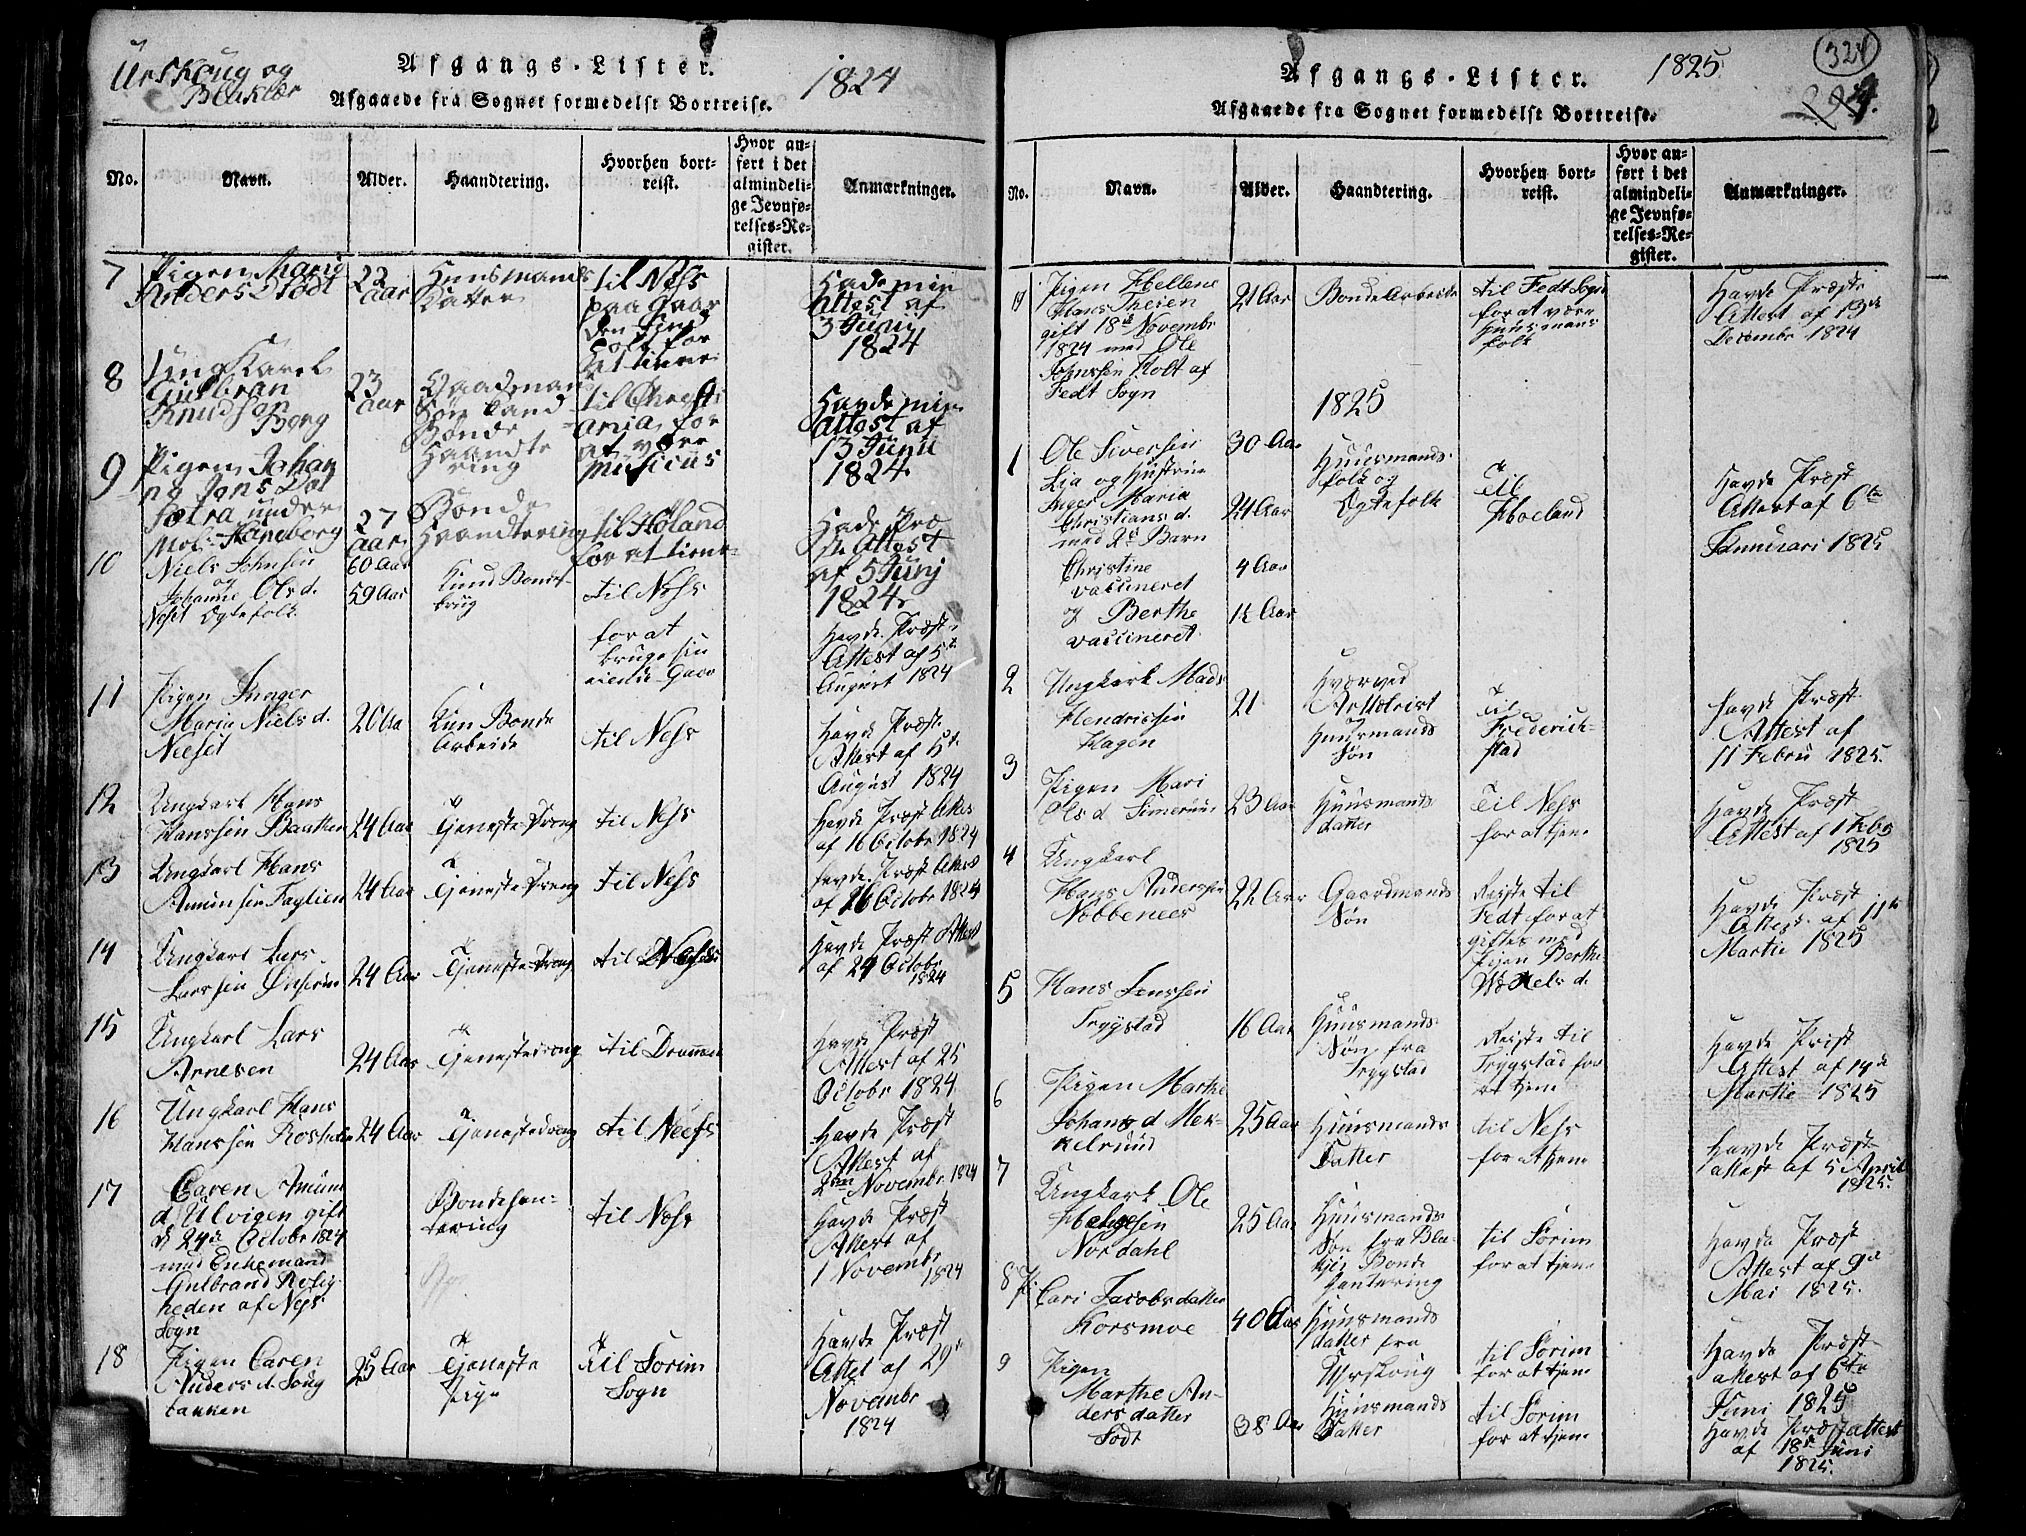 Urskoug og
Blakiær
Afgangs-Lister.
1824
Afgaaede fra Sognet formedelst Bortreise.
No.
Navn.
Alder.
Haandtering.
Hvorhen bort-
reist.
Hvor an-
ført i det
almindeli-
ge Jevnfø-
relses-Re-
gister.
Anmærkninger.
7
Pigen Marig
Anders Sodt
22
Aar
Huusmands
Datter
til Næss
paa Gaar
den
for
at tiene
Hade min
Attest af
3 Junij
1824
8
Ung Karel
Gulbran
Knudsen
Borg
23
Aar
Gaadmand
Søn
Bonde
Haandte
ring
til Christi
ania for
at være
Musicus
Havde min
Attest af
13 Junij
1824
9
Pigen Johan
na Jens
Sætra under
27
Aar
Bonde
Haandtering
til Høland
for at tiene
Hade Præ
ste Attest
af 5 Junj
1824
10
Niels Johnsen
og
Johanne Ols d.
Neset Ægtefolk
60 Aar
59 Aar
Kund Bonde
brug
til Næss
for at
bruge sin
eiende Gaar
Havde Præst
Attest af 5te
August 1824
11
Pigen Inger
Maria Niels d.
Neeset
20 Aa
Kun Bonde
Arbeide
til Næss
Havde Præst
Attest af 5te
August 1824
12
Ungkarl Hans
Hanssen Baakken
24 Aar
Tjeneste Dreng
til Næss
Havde Præst Attes
af 16 Octobr 1824
13
Ungkarl Hans
Amunsen Faglien
24 Aar
Tjeneste Dreng
til Næss
Havde Præst Attest
af 26 Octobr 1824
14
Ungkarl Lars
Larssen
24 Aar
Tjeneste Dreng
til Næss
Havde Præst Attest
af 24 Octobr
1824
15
Ungkarl Lars
Arnesen
24 Aar
Tjenestedreng
til Drammen
Havde Præst
Attest af 25
Octobr 1824
16
Ungkarl Hans
Hanssen Rosholm
24 Aar
Tjenestedreng
til Neess
Havde Præst
Attest af
2den Novembr 1824
17
Caren Amund
d. Ulvigen gift
d. 24de Octobr 1824
med Enkemand
Gulbrand Rolig
heden af Næss
Sogn
Bondehan-
tering
til Næss
Havde Præst
Attest af
1 Novembr
1824
18
Pigen Caren
Anders d. Soug
bakken
25 Aar
Tjeneste
Pige
Til Sørim
Sogn
Havde Præst
Attest af 29de
Novembr
1824
Afgangs-Lister.
1825
324
Afgaaede fra Sognet formedelst Bortreise.
No.
Navn.
Alder.
Haandtering.
Hvorhen bort-
reist.
Hvor an-
ført i det
almindeli-
ge Jevnfø-
relses-Re-
gister.
Anmærkninger.
19
Pigen Hellene
Hans Theien
gift 18de Novembr
1824 med Ole
Johnssen Holt af
Fedt Sogn
21 Aar
Bonde Arbeide
til Fedt Sogn
for at være
Huusmans
folk
Havde Præst
Attest af 13de
Decembr 1824
1825
1
Ole Siversen
Lia og Hustrue
Inger Maria
Christians d.
med 2de Barn
Christine
vaccineret
og Berthe
vaccineret
30 Aar
24 Aar
4 Aar
1½ Aar
Huusmands
folk og
Ægtefolk
Til
Høeland
Havde Præst
Attest af 6te
Januari 1825
2
Ungkarl Mads
Hendricsen
Hagen
21
Hværved
Artillerist
Huusmands
Søn
Til
Frederich-
stad
Havde Præst
Attest af
11 Febru 1825.
3
Pigen Mari
Ols d Simeruud
23 Aar
Huusmands
datter
Til Næss
for at tjene
Havde Præst
Attest af 1 Feb
1825
4
Ungkarl
Hans Anderssen
Nobbenees
22 Aar
Gaardmands
Søn
Reiste til
Fedt for at
giftes med
Pigen Berthe
Niels d.
Havde Præst
Attest af 11te
Martie 1825
5
Hans Jenssen
Trygstad
16 Aar
Huusmands
Søn fra
Trygstad
Reiste til
Trygstad for
at tjene
Havde Præst
Attest af 14de
Martie 1825
6
Pigen Marthe
Johans d Mer-
kelruud
25 Aar
Huusmands
Datter
til Næss
for at tjene
Havde Præst
attest af 5 April
1825.
7
Ungkarl Ole
Helgesen
Nordahl
25 Aar
Huusmands
Søn fra Bla-
kjer Bonde
hantering
til Sørim
for at tjene
Havde Præst
Attest af 9de
Mai 1825.
8
Pi
Cari Jacobsdatter
Korsmoe
40 Aar
Huusmands
datter fra
Urskoug
til Sørim
for at tjene
Havde Præst
attest af 6te
Juni 1825
9
Pigen
Marthe An-
dersdatter
Sodt
38 Aar
Huusmands
Datter
til Sørim
for at tjene
Havde Præst attest
af 18de Juni
1825.